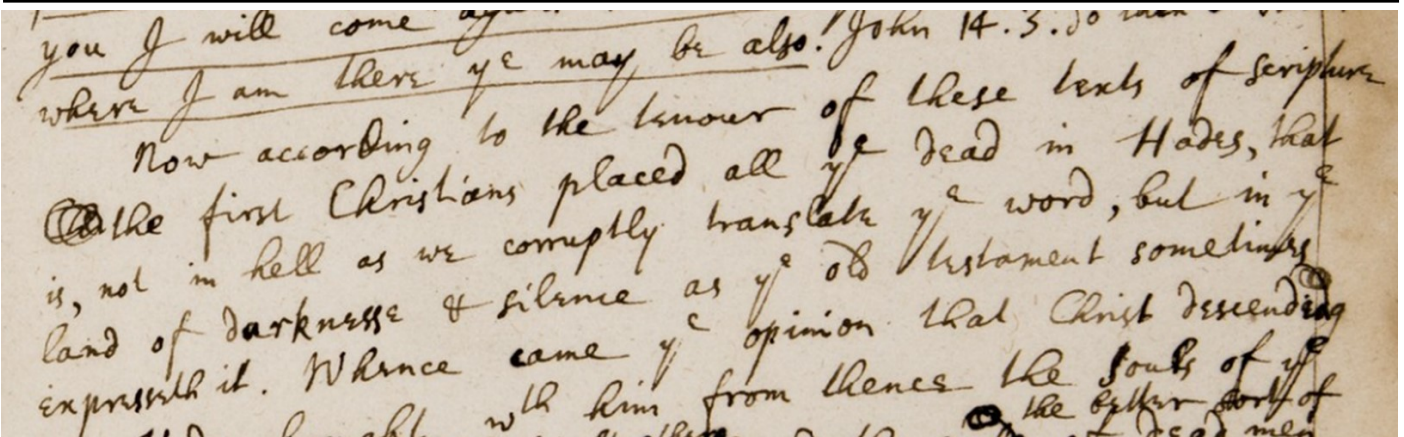 you I will come again
where I am there ye may be also. John 14.3. So
Now according to the tenour of these texts of scripture
the first Christians placed all ye dead in Hades, that
is, not in hell as we corruptly translate ye word, but in ye
land of darknesse & silence as ye old testament sometimes
expresseth it. Whence came ye opinion that Christ descending
wth him from thence the souls of ye
the better sort of
dead men